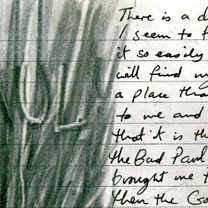 There is a d
I seem to f
it so easily
will find my
a place tha
to me and
that it is th
the Bad Paul
brought me t
then the Goo